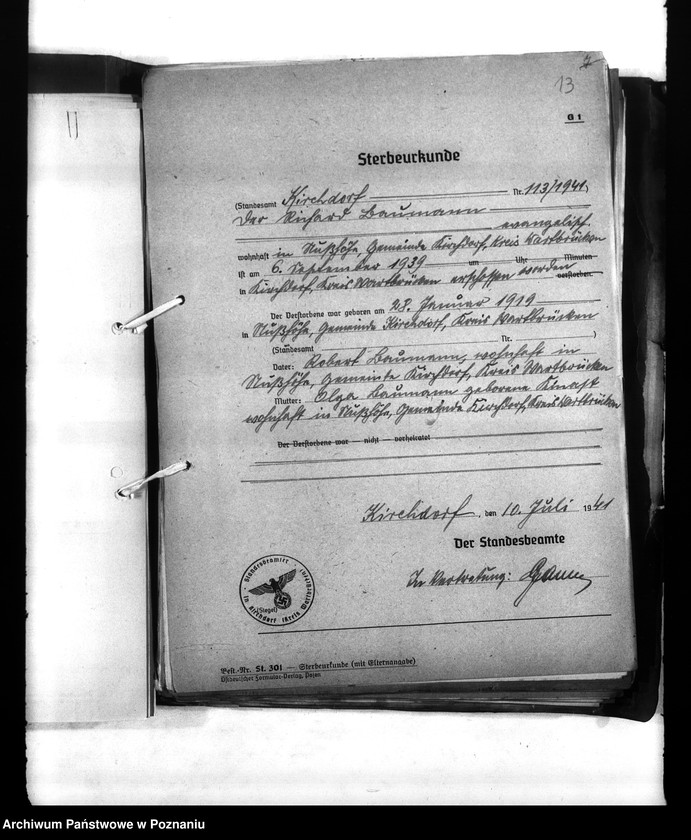 13
G 1
Sterbeurkunde
(Standesamt Kirchdorf Nr. 113/1941)
Der Richard Baumann
evangelisch
wohnhaft in Nußhöhe, Gemeinde Kirchdorf, Kreis Wartbrücken
ist am 6. September 1939 um Uhr Minuten
in Kirchdorf, Kreis Wartbrücken erschossen worden verstorben.
Der Verstorbene war geboren am 28. Januar 1919
in Nußhöhe, Gemeinde Kirchdorf, Kreis Wartbrücken
(Standesamt Nr. )
Vater: Robert Baumann, wohnhaft in
Nußhöhe, Gemeinde Kirchdorf, Kreis Wartbrücken
Mutter: Olga Baumann geborene Kinast
wohnhaft in Nußhöhe, Gemeinde Kirchdorf, Kreis Wartbrücken
Der Verstorbene war — nicht — verheiratet
Kirchdorf, den 10. Juli 1941
Der Standesbeamte
In Vertretung:
(Siegel)
Best.-Nr. St. 301 — Sterbeurkunde (mit Elternangabe)
Ostdeutscher Formular-Verlag, Posen
Archiwum Państwowe w Poznaniu